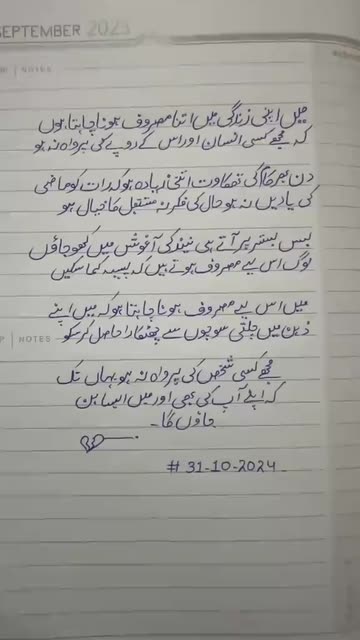 SEPTEMBER 2023
NOTES
میں اپنی زندگی میں اتنا مصروف ہونا چاہتا ہوں
کہ مجھے کسی انسان اور اس کے رویے کی پرواہ نہ ہو
دن بھر کام کی تھکاوٹ اتنی زیادہ ہو کہ رات کو ماضی
کی یادیں نہ ہو حال کی فکر نہ مستقبل کا خیال ہو
بس بستر پر آتے ہی نیند کی آغوش میں کھو جاؤں
لوگ اس لیے مصروف ہوتے ہیں کہ پیسہ کما سکیں
میں اس لیے مصروف ہونا چاہتا ہو کہ میں اپنے
NOTES
ذہن میں چلتی سوچوں سے چھٹکارا حاصل کر سکو
مجھے کسی شخص کی پرواہ نہ ہو یہاں تک
کہ اپنے آپ کی بھی اور میں ایسا بن
جاؤں گا۔
# 31-10-2024